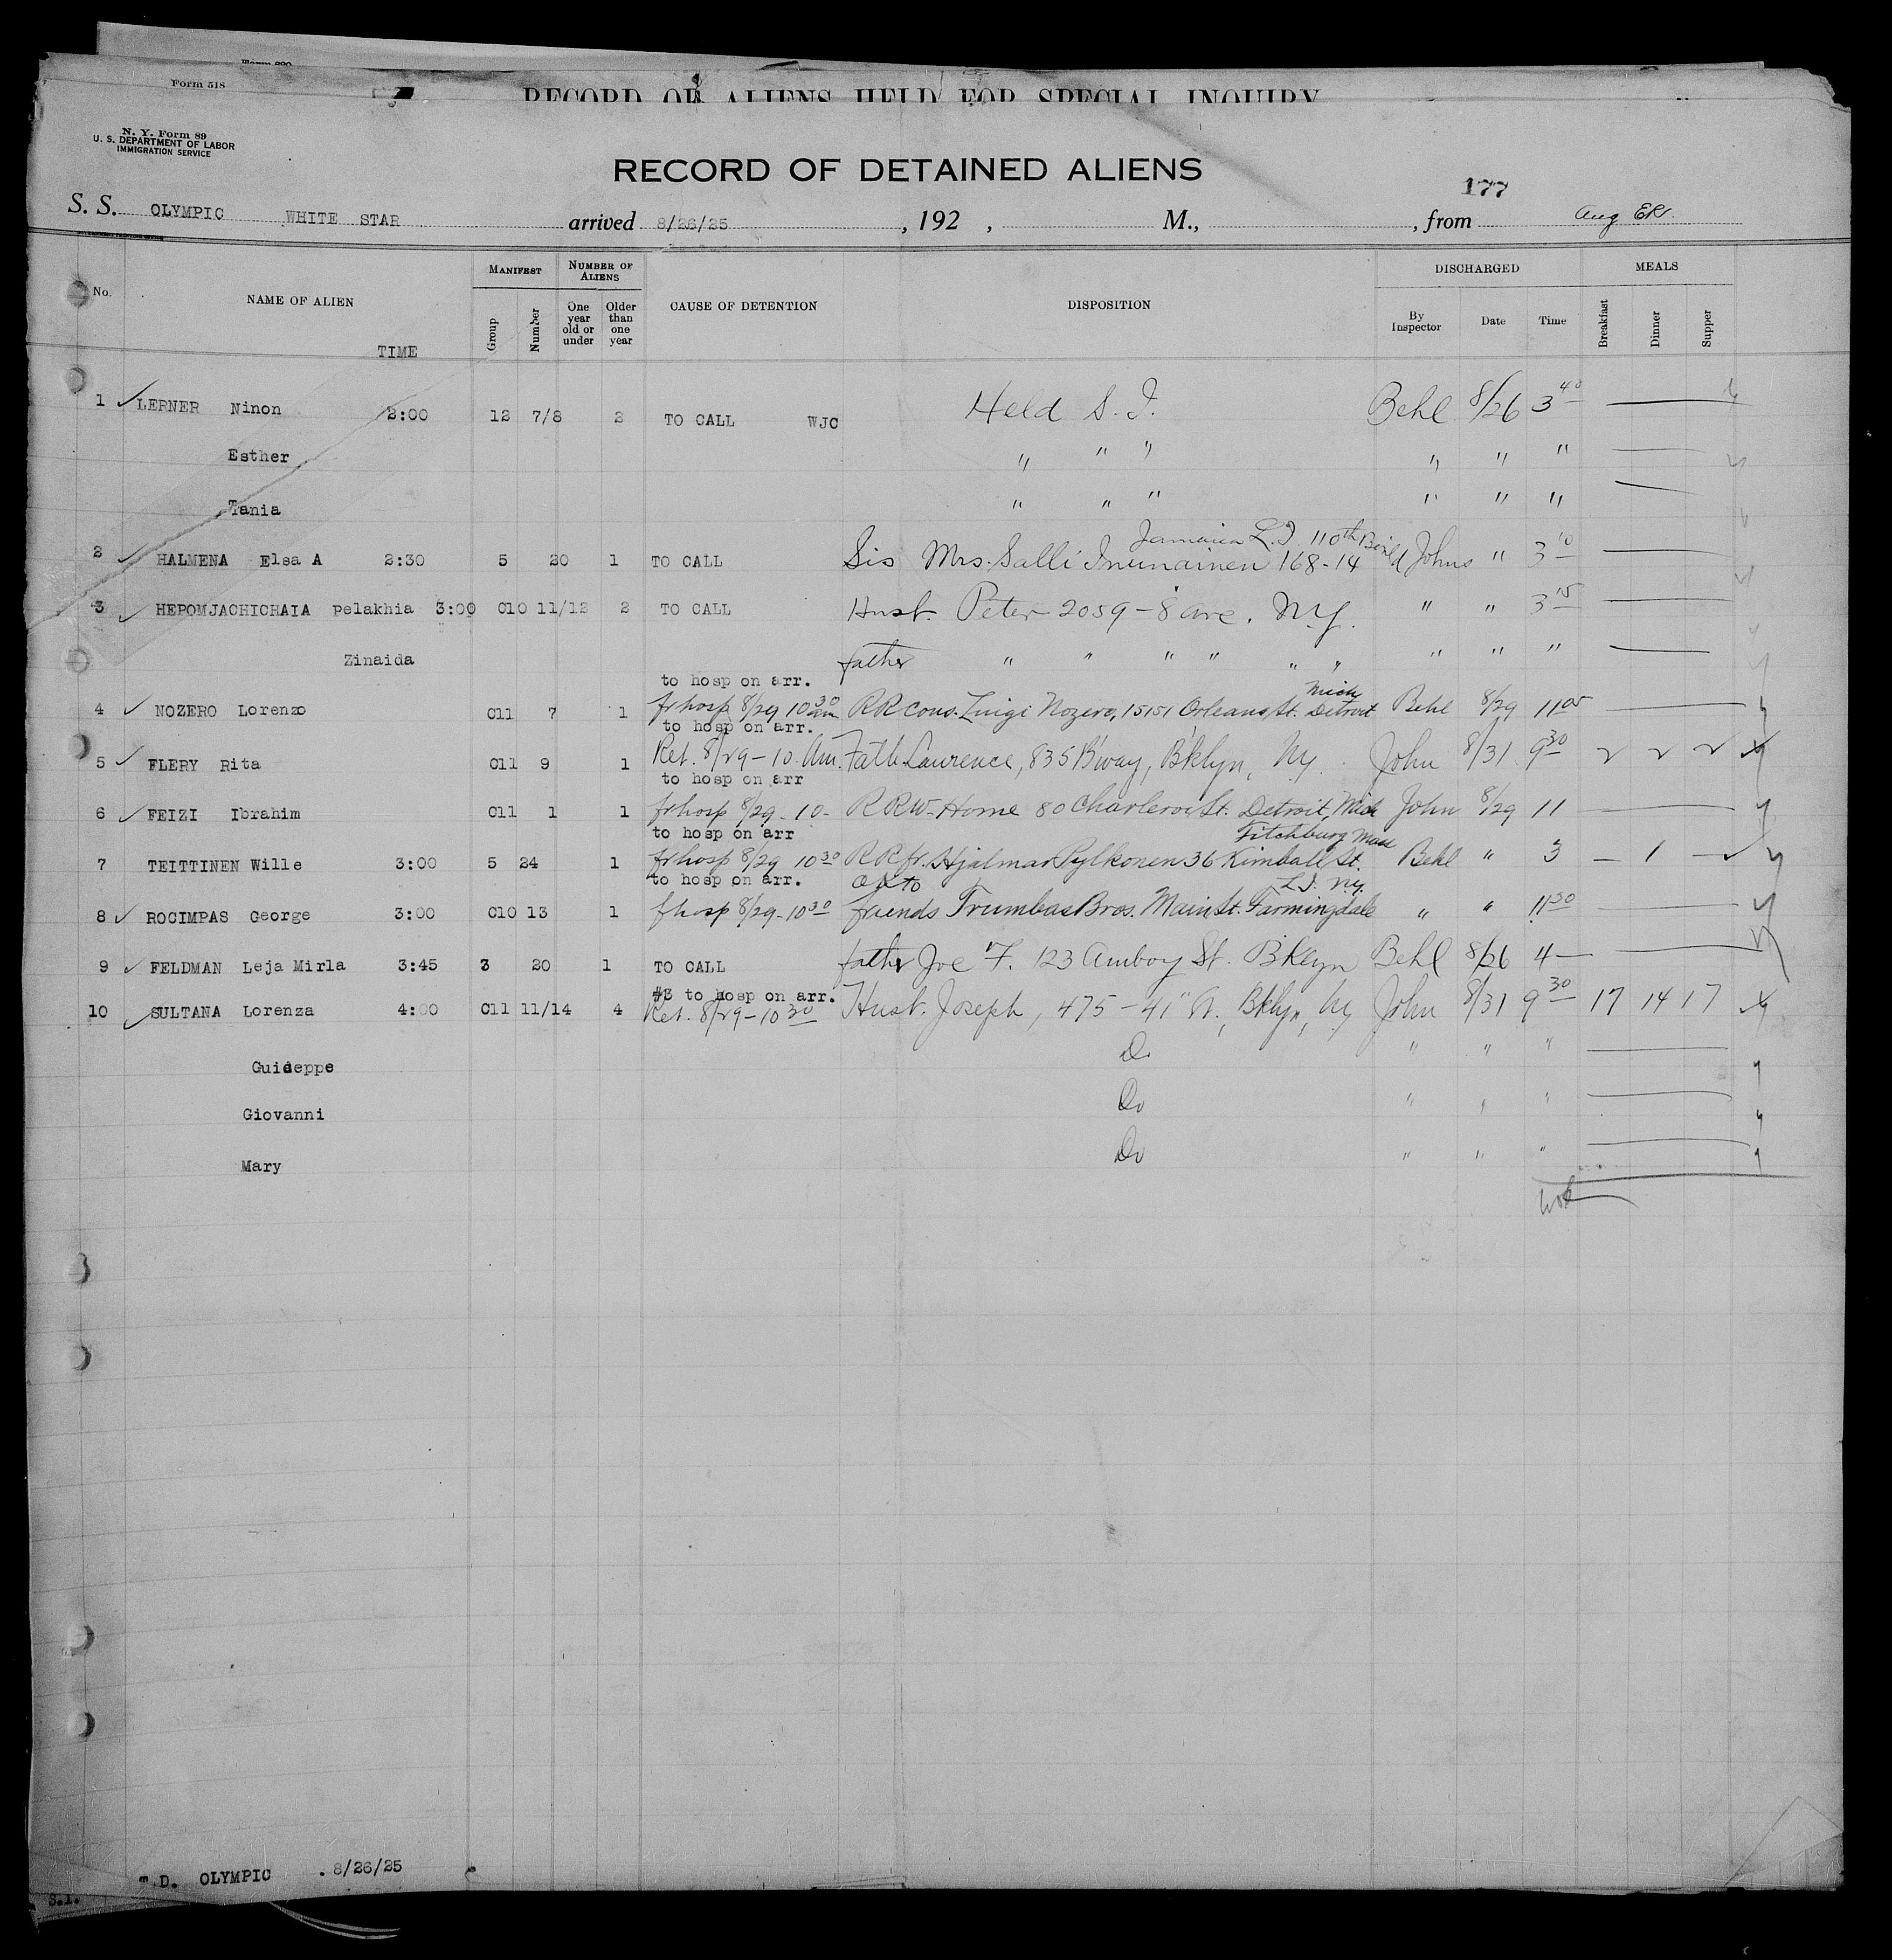 Form 518
RECORD OF ALIENS HELD FOR SPECIAL INQUIRY
N. Y. Form 89
U. S. DEPARTMENT OF LABOR
IMMIGRATION SERVICE
RECORD OF DETAINED ALIENS
177
S. S. OLYMPIC WHITE STAR arrived 8/26/25 , 192 , M., , from Aug
No. NAME OF ALIEN TIME MANIFEST Group Number NUMBER OF ALIENS One year old or under Older than one year CAUSE OF DETENTION DISPOSITION DISCHARGED By Inspector Date Time MEALS Breakfast Dinner Supper
1 LERNER Ninon 2:00 12 7/8 2 TO CALL WJC Held S. I. Behl 8/26 3 40
Esther " " " " " "
Tania " " " " " "
Jamaica L.I. 110th
2 HALMENA Elsa A 2:30 5 20 1 TO CALL Sis Mrs. Salli 168-14 Johns " 3 10
3 HEPOMJACHICHAIA Pelakhia 3:00 C10 11/12 2 TO CALL Husb. Peter 2059-8 ave. N.Y. " " 3 15
Zinaida father " " " " " " " " "
to hosp on arr. Mich
4 NOZERO Lorenzo C11 7 1 fr hosp 8/29 10 30 am RR cous. Luigi Nozero, 15151 Orleans St. Detroit Behl 8/29 11 05
to hosp on arr.
5 FLERY Rita C11 9 1 Ret. 8/29-10 Am. Fath Laurence, 835 B'way, B'klyn, Ny. John 8/31 9 30 2 2 2
to hosp on arr
6 FEIZI Ibrahim C11 1 1 fr hosp 8/29-10- RRW-Home 80 Charlerois St. Detroit, Mich John 8/29 11
to hosp on arr Fitchburg Mass
7 TEITTINEN Wille 3:00 5 24 1 fr hosp 8/29 10 30 RR fr. Hjalmar Pylkonen 36 Kimball St. Behl " 3 — 1 —
to hosp on arr. L.I. N.Y.
8 ROCIMPAS George 3:00 C10 13 1 f hosp 8/29-10 30 friends Trumbas Bros. Main St. Farmingdale " " 11 30
9 FELDMAN Leja Mirla 3:45 3 20 1 TO CALL father Joe F. 123 Amboy St. B'klyn Behl 8/26 4 —
#3 to hosp on arr.
10 SULTANA Lorenza 4:00 C11 11/14 4 Ret. 8/29-10 30 Husb. Joseph, 475-41" St., Bklyn, Ny John 8/31 9 30 17 14 17
Guiseppe Do " " "
Giovanni Do " " "
Mary Do " " "
T.D. OLYMPIC . 8/26/25
S.I.